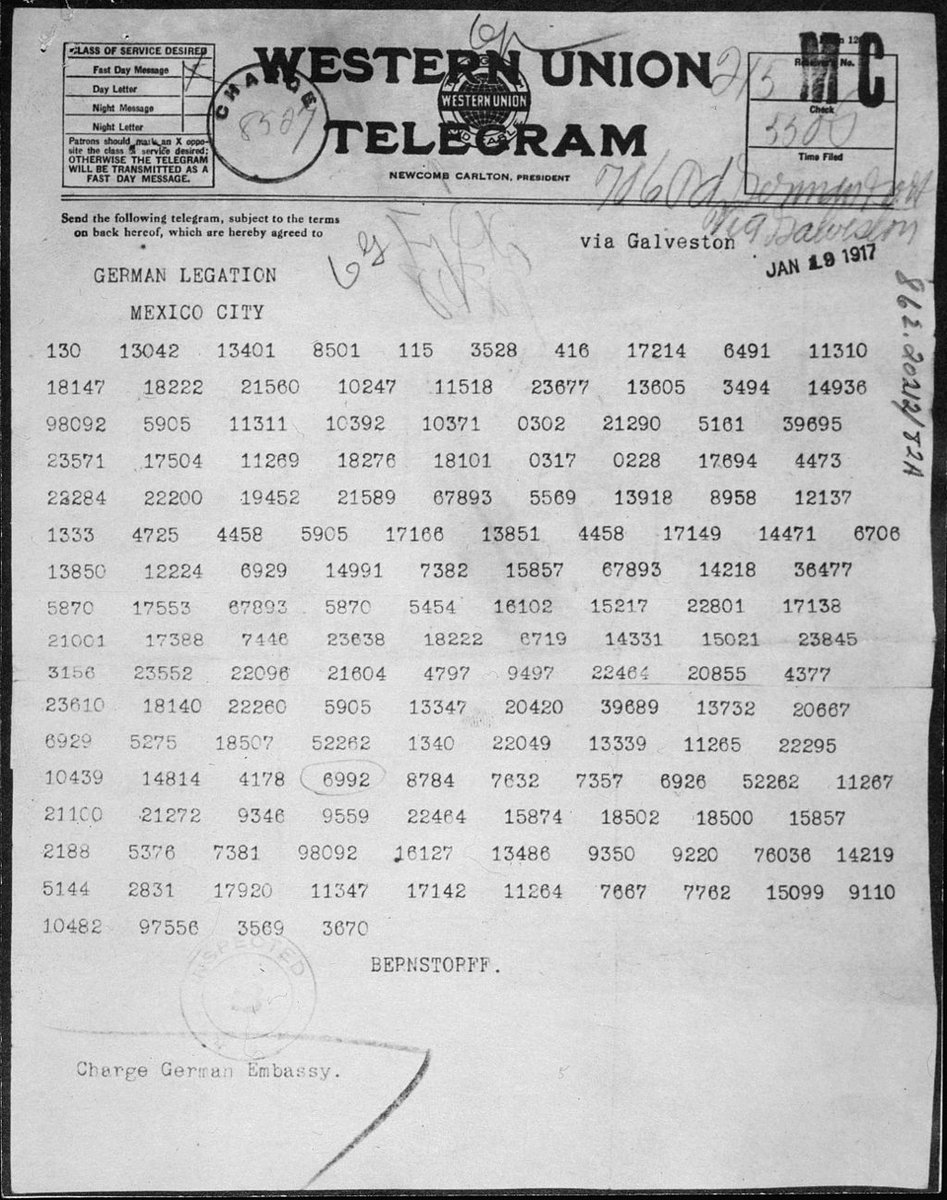 CLASS OF SERVICE DESIRED
Fast Day Message
Day Letter
Night Message
Night Letter
Patrons should mark an X oppo-
site the class of service desired;
OTHERWISE THE TELEGRAM
WILL BE TRANSMITTED AS A
FAST DAY MESSAGE.
CHARGE
WESTERN UNION
WESTERN UNION
TELEGRAM
NEWCOMB CARLTON, PRESIDENT
215
M C
Receiver's No.
Check
Time Filed
Send the following telegram, subject to the terms
on back hereof, which are hereby agreed to
via Galveston
via Galveston
JAN 19 1917
GERMAN LEGATION
MEXICO CITY
862.20212/82A
130 13042 13401 8501 115 3528 416 17214 6491 11310
18147 18222 21560 10247 11518 23677 13605 3494 14936
98092 5905 11311 10392 10371 0302 21290 5161 39695
23571 17504 11269 18276 18101 0317 0228 17694 4473
22284 22200 19452 21589 67893 5569 13918 8958 12137
1333 4725 4458 5905 17166 13851 4458 17149 14471 6706
13850 12224 6929 14991 7382 15857 67893 14218 36477
5870 17553 67893 5870 5454 16102 15217 22801 17138
21001 17388 7446 23638 18222 6719 14331 15021 23845
3156 23552 22096 21604 4797 9497 22464 20855 4377
23610 18140 22260 5905 13347 20420 39689 13732 20667
6929 5275 18507 52262 1340 22049 13339 11265 22295
10439 14814 4178 6992 8784 7632 7357 6926 52262 11267
21100 21272 9346 9559 22464 15874 18502 18500 15857
2188 5376 7381 98092 16127 13486 9350 9220 76036 14219
5144 2831 17920 11347 17142 11264 7667 7762 15099 9110
10482 97556 3569 3670
BERNSTORFF.
INSPECTED
Charge German Embassy.